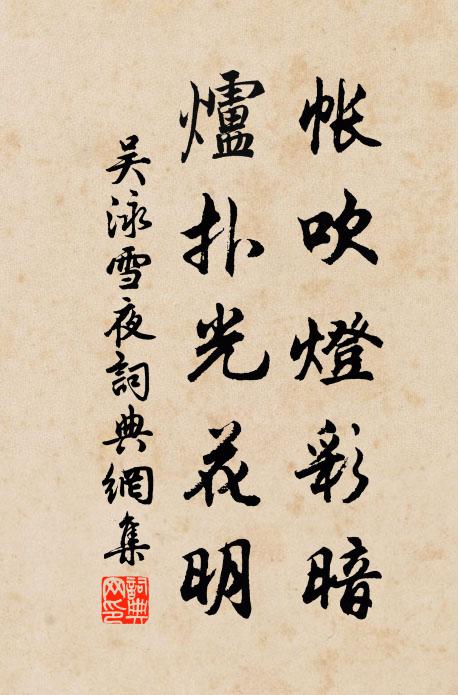 帐吹燈彩暗
爐扑光花明
吴泳雪夜詞典網集
詞典网印